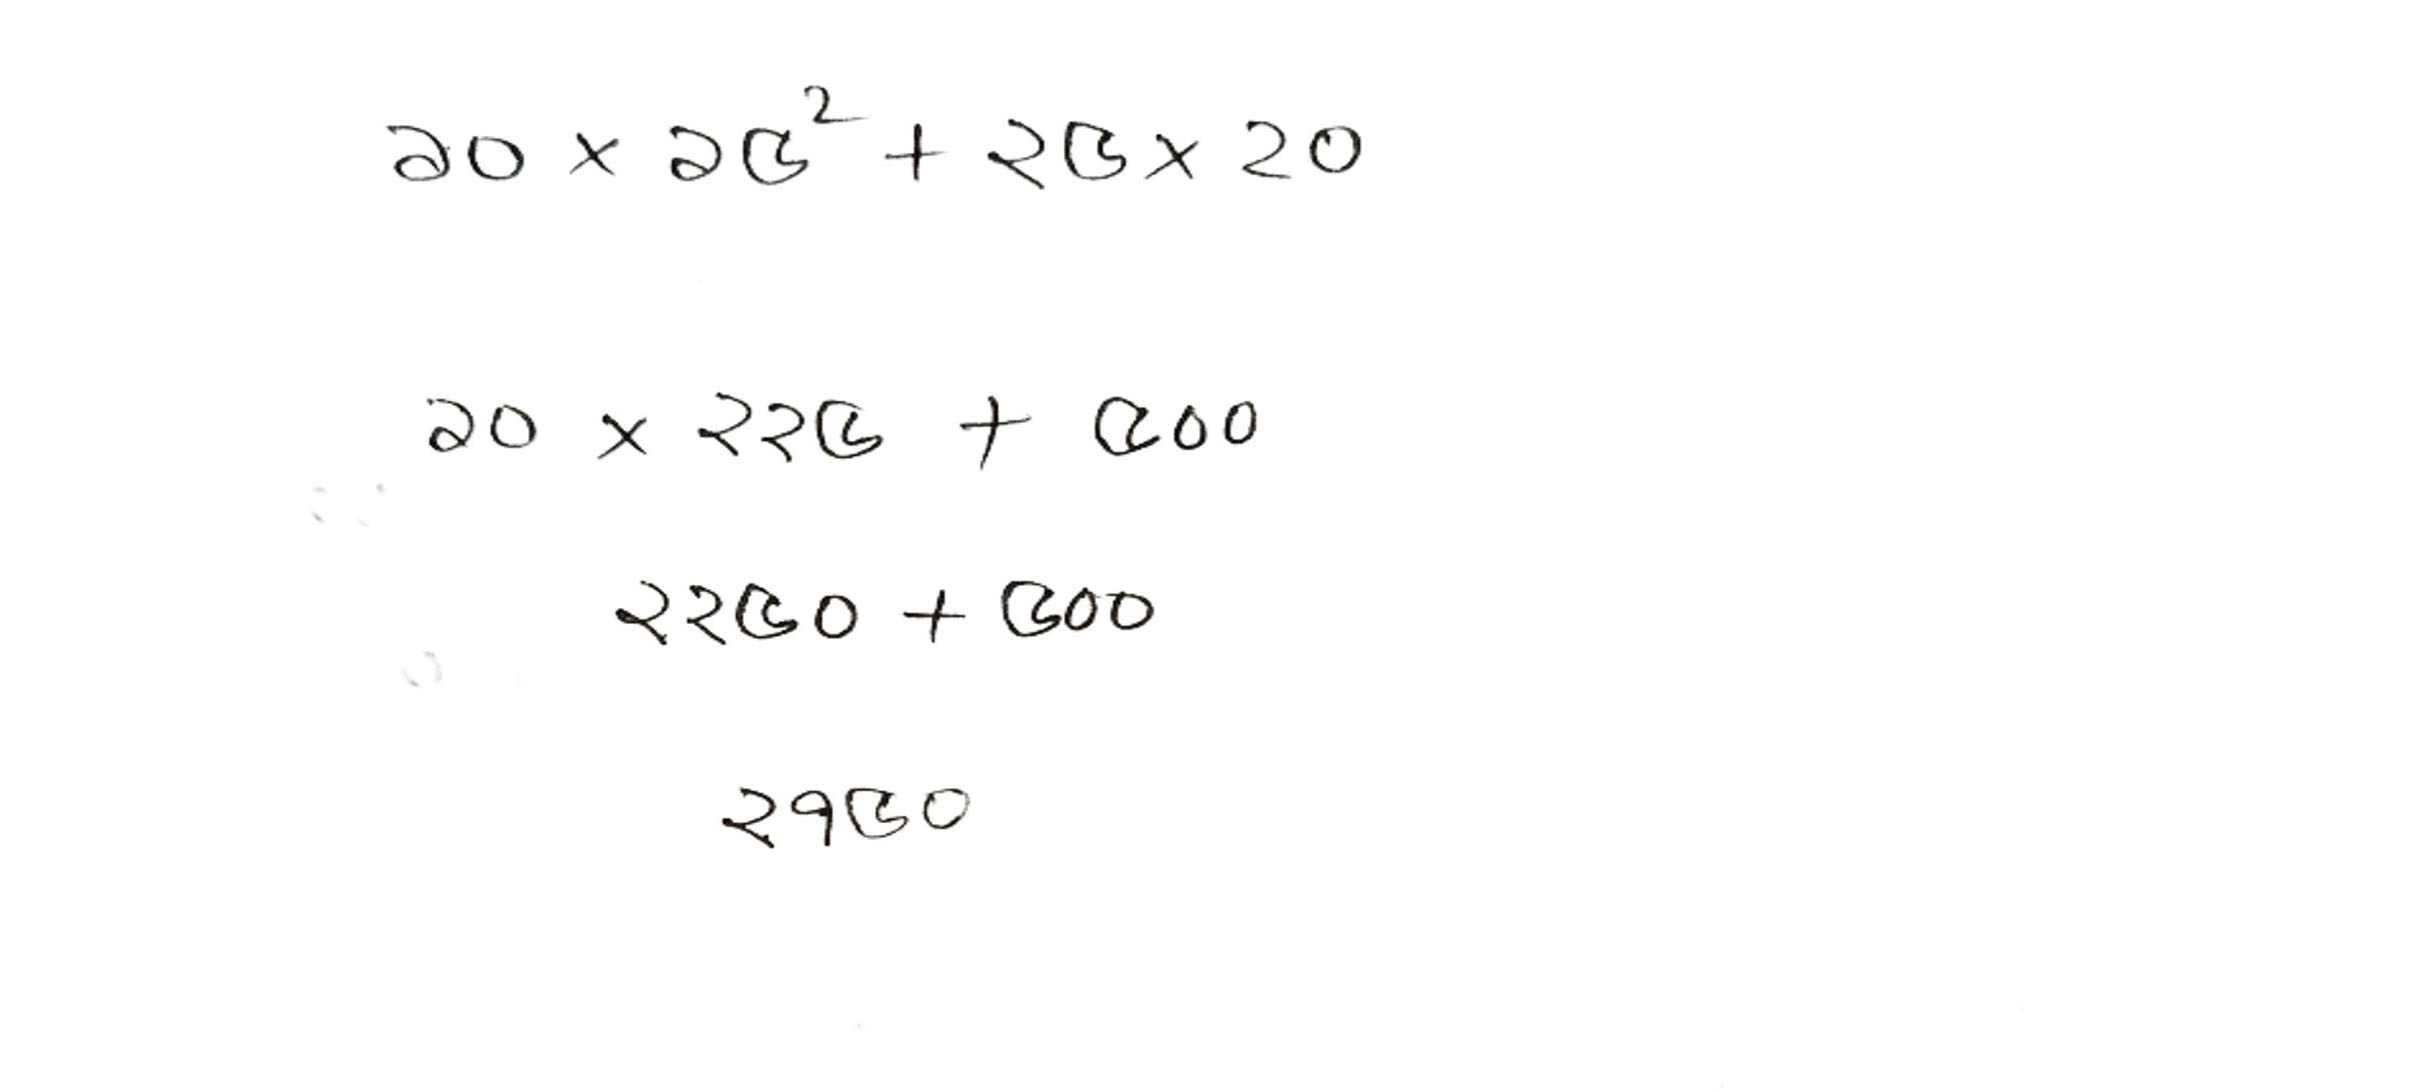 ১০ × ১৫² + ২৫ × ২০
১০ × ২২৫ + ৫০০
২২৫০ + ৫০০
২৭৫০